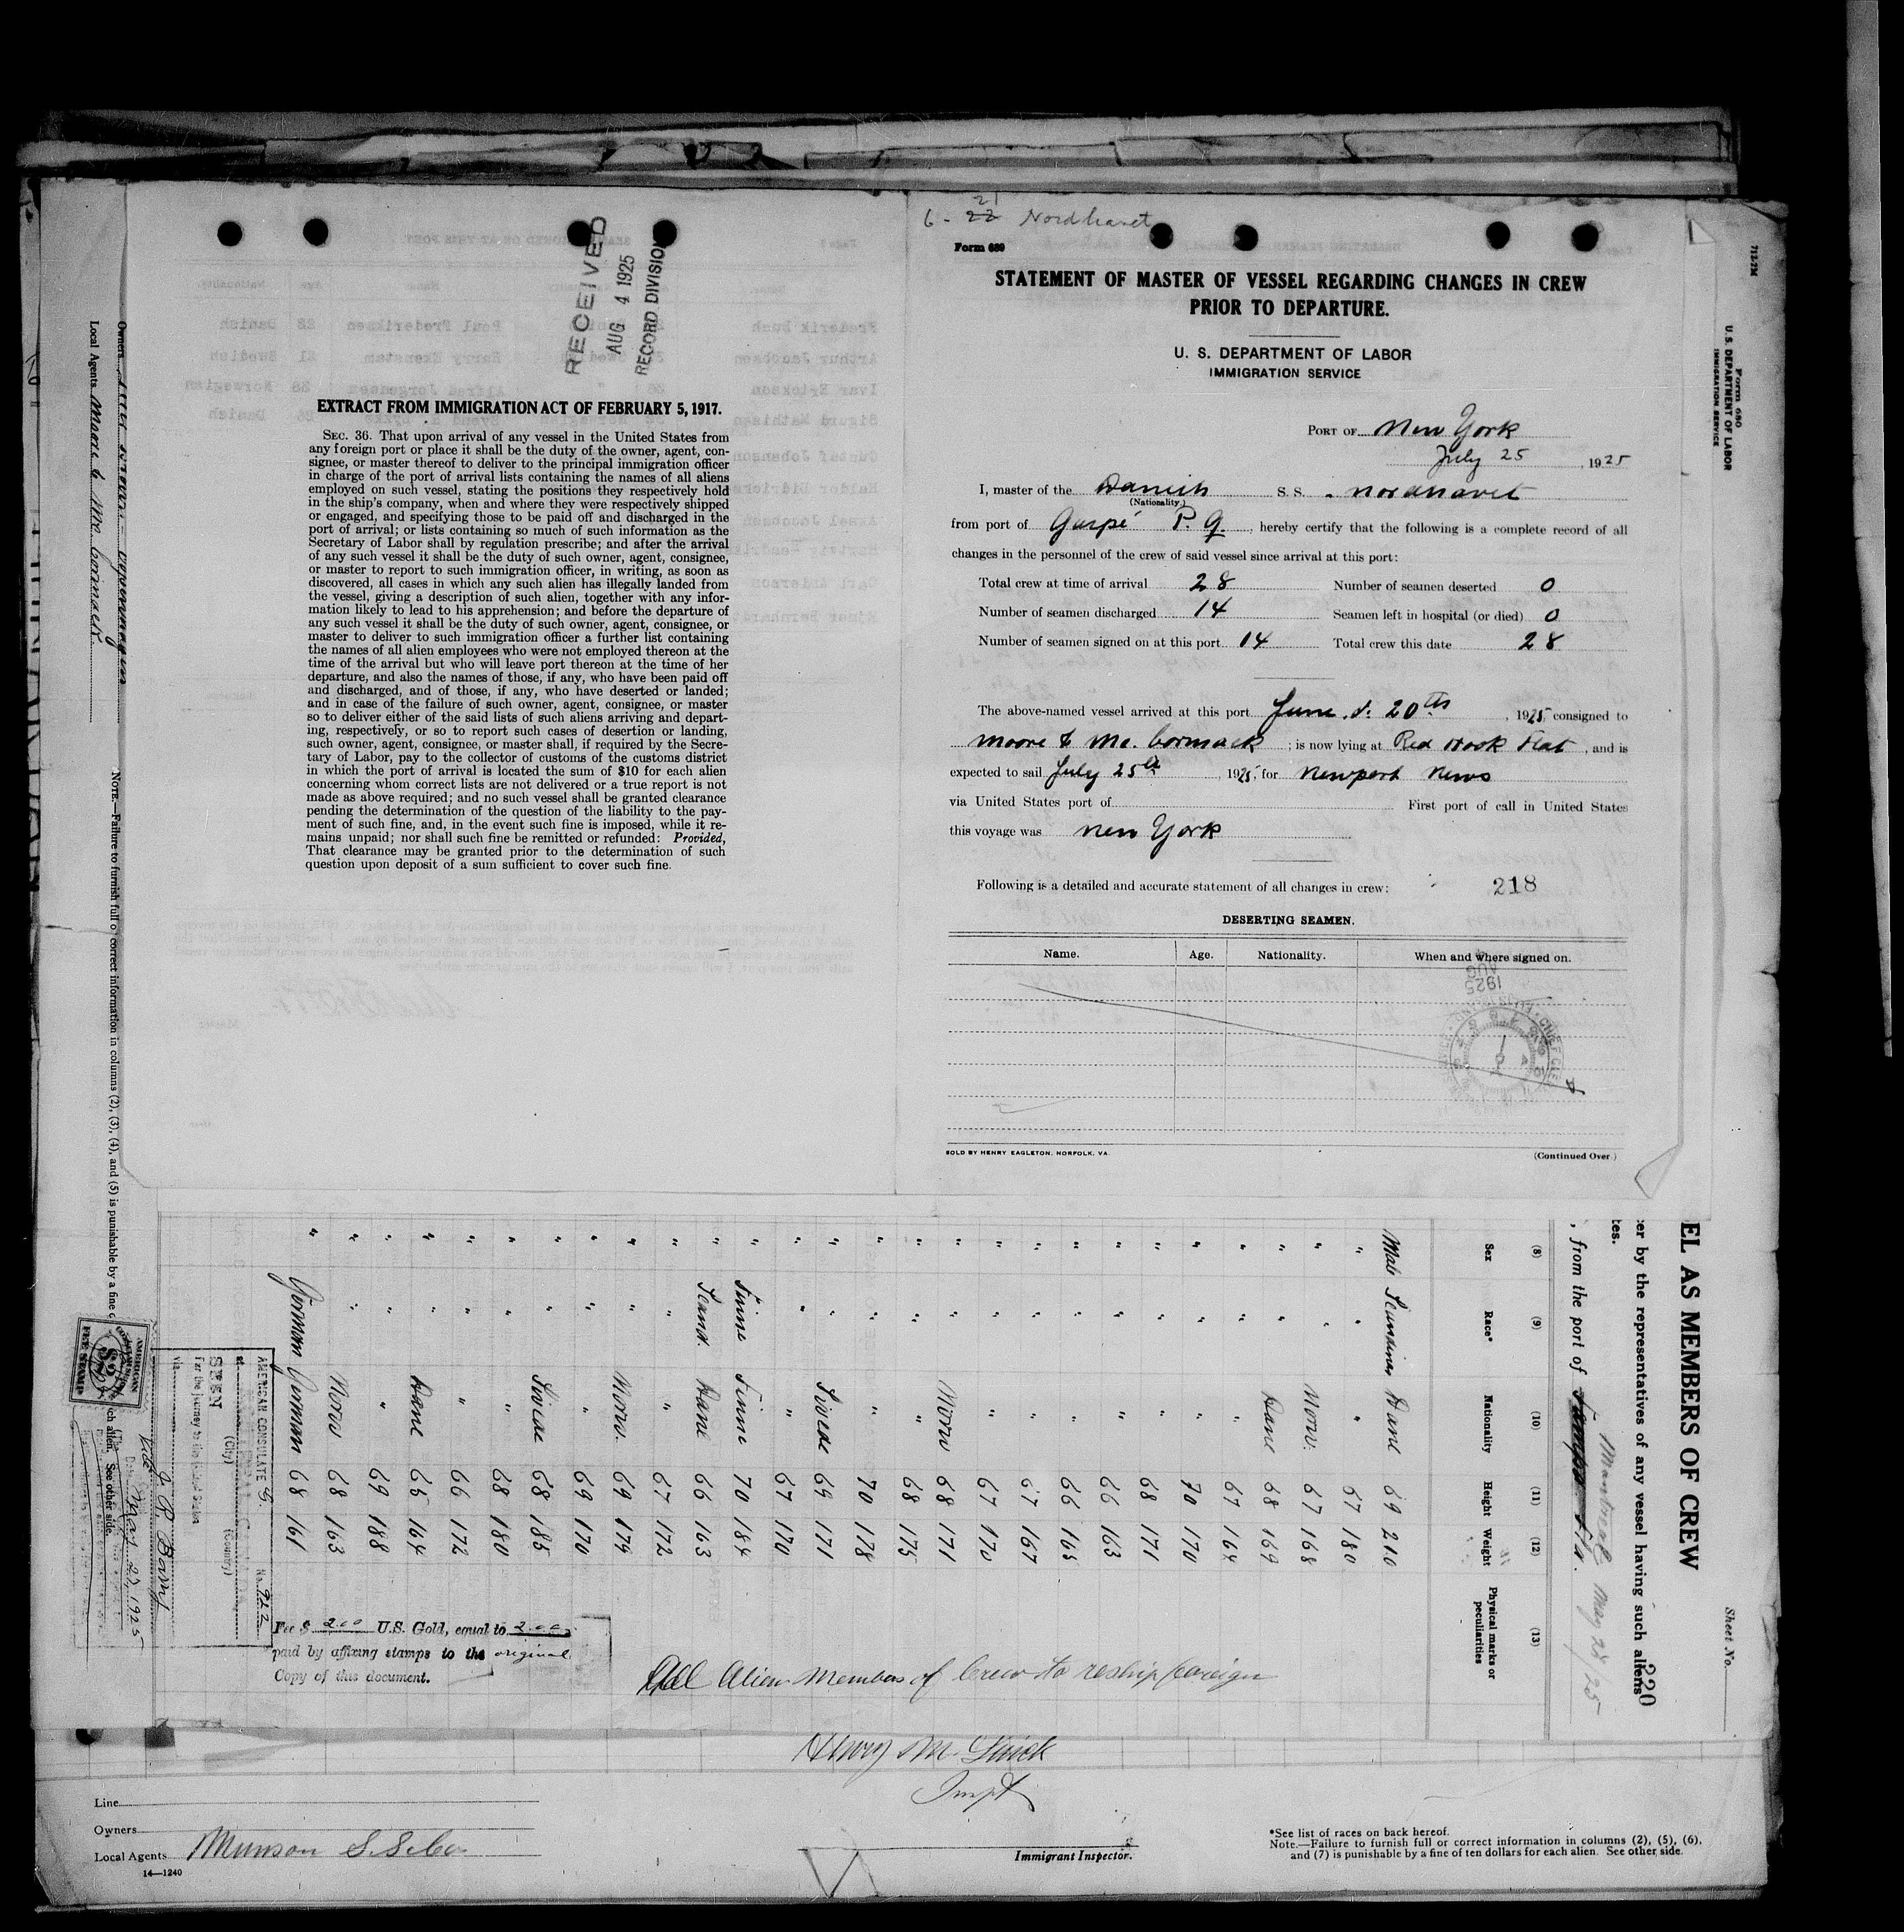 6 - 21 Nordhavet
Form 680
STATEMENT OF MASTER OF VESSEL REGARDING CHANGES IN CREW
PRIOR TO DEPARTURE.
U. S. DEPARTMENT OF LABOR
IMMIGRATION SERVICE
PORT OF New York
July 25, 1925
I, master of the Danish S. S. Nordhavet
(Nationality)
from port of Gaspé P. Q., hereby certify that the following is a complete record of all
changes in the personnel of the crew of said vessel since arrival at this port:
Total crew at time of arrival 28 Number of seamen deserted 0
Number of seamen discharged 14 Seamen left in hospital (or died) 0
Number of seamen signed on at this port 14 Total crew this date 28
The above-named vessel arrived at this port June d. 20th, 1925 consigned to
Moore & Mc. Cormack; is now lying at Red Hook Flat, and is
expected to sail July 25th, 1925, for Newport News
via United States port of First port of call in United States
this voyage was New York
Following is a detailed and accurate statement of all changes in crew: 218
DESERTING SEAMEN.
Name. Age. Nationality. When and where signed on.
AUG 4
1925
SOLD BY HENRY EAGLETON, NORFOLK, VA. (Continued Over)
RECEIVED
AUG 4 1925
RECORD DIVISION
EXTRACT FROM IMMIGRATION ACT OF FEBRUARY 5, 1917.
SEC. 36. That upon arrival of any vessel in the United States from
any foreign port or place it shall be the duty of the owner, agent, con-
signee, or master thereof to deliver to the principal immigration officer
in charge of the port of arrival lists containing the names of all aliens
employed on such vessel, stating the positions they respectively hold
in the ship's company, when and where they were respectively shipped
or engaged, and specifying those to be paid off and discharged in the
port of arrival; or lists containing so much of such information as the
Secretary of Labor shall by regulation prescribe; and after the arrival
of any such vessel it shall be the duty of such owner, agent, consignee,
or master to report to such immigration officer, in writing, as soon as
discovered, all cases in which any such alien has illegally landed from
the vessel, giving a description of such alien, together with any infor-
mation likely to lead to his apprehension; and before the departure of
any such vessel it shall be the duty of such owner, agent, consignee, or
master to deliver to such immigration officer a further list containing
the names of all alien employees who were not employed thereon at the
time of the arrival but who will leave port thereon at the time of her
departure, and also the names of those, if any, who have been paid off
and discharged, and of those, if any, who have deserted or landed;
and in case of the failure of such owner, agent, consignee, or master
so to deliver either of the said lists of such aliens arriving and depart-
ing, respectively, or so to report such cases of desertion or landing,
such owner, agent, consignee, or master shall, if required by the Secre-
tary of Labor, pay to the collector of customs of the customs district
in which the port of arrival is located the sum of $10 for each alien
concerning whom correct lists are not delivered or a true report is not
made as above required; and no such vessel shall be granted clearance
pending the determination of the question of the liability to the pay-
ment of such fine, and, in the event such fine is imposed, while it re-
mains unpaid; nor shall such fine be remitted or refunded: Provided,
That clearance may be granted prior to the determination of such
question upon deposit of a sum sufficient to cover such fine.
Form 680
U. S. DEPARTMENT OF LABOR
IMMIGRATION SERVICE
Sheet No.
EL AS MEMBERS OF CREW
220
er by the representatives of any vessel having such aliens
tes.
, from the port of Montreal May 28/25
(8) (9) (10) (11) (12) (13)
Sex Race* Nationality Height Weight Physical marks or peculiarities
Male Scandinav Dane 69 210
" " " 67 180
" " Norw. 67 168
" " Dane 68 169
" " " 67 164
" " " 70 170
" " " 68 171
" " " 66 163
" " " 66 165
" " " 67 167
" " " 67 170
" " Norw 68 171
" " " 68 175
" " " 70 178
" " Svede 69 171
" " " 67 170
" Finine Finine 70 184
" Scand. Dane 66 163
" " " 67 172
" " Norw. 69 174
" " " 69 170
" " Svede 68 185
" " " 68 180
" " " 66 172
" " Dane 65 164
" " " 69 188
" " Norw 68 163
" German German 68 161
AMERICAN CONSULATE G.
No. 922
at
(City) (Country)
SEEN
For the journey to the United States
via
May 27, 1925
AMERICAN
CONSULAR SERVICE
$2
FEE STAMP
Fee $ 2.00 U.S. Gold, equal to 2.00
paid by affixing stamps to the original
Copy of this document.
All Alien Members of Crew to reship foreign
Henry M.
Inspt
Immigrant Inspector.
Owners
Local Agents Moore & Mc. Cormack.
NOTE.—Failure to furnish full or correct information in columns (2), (3), (4), and (5) is punishable by a fine
ch alien. See other side.
Line
Owners
Local Agents Munson S.S. Co.
14—1240
*See list of races on back hereof.
NOTE.—Failure to furnish full or correct information in columns (2), (5), (6),
and (7) is punishable by a fine of ten dollars for each alien. See other side.